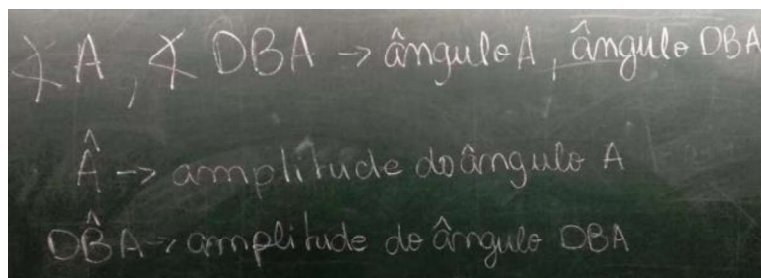 ∢ A, ∢ DBA → ângulo A, ângulo DBA
Â → amplitude do ângulo A
DB̂A → amplitude do ângulo DBA